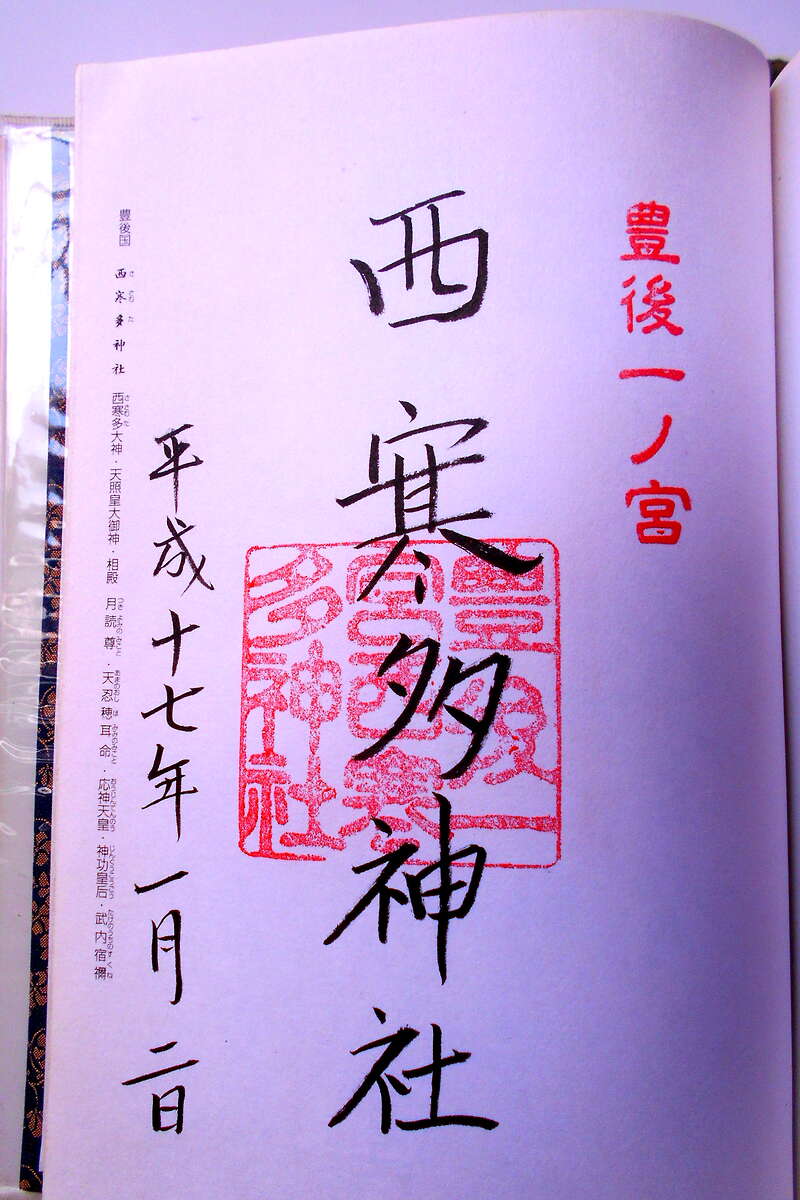 豊後一ノ宮
西寒多神社
豊後一
宮西寒
多神社
平成十七年一月二日
豊後国 西寒多神社 西寒多大神・天照皇大御神・相殿 月読尊・天忍穂耳命・応神天皇・神功皇后・武内宿禰